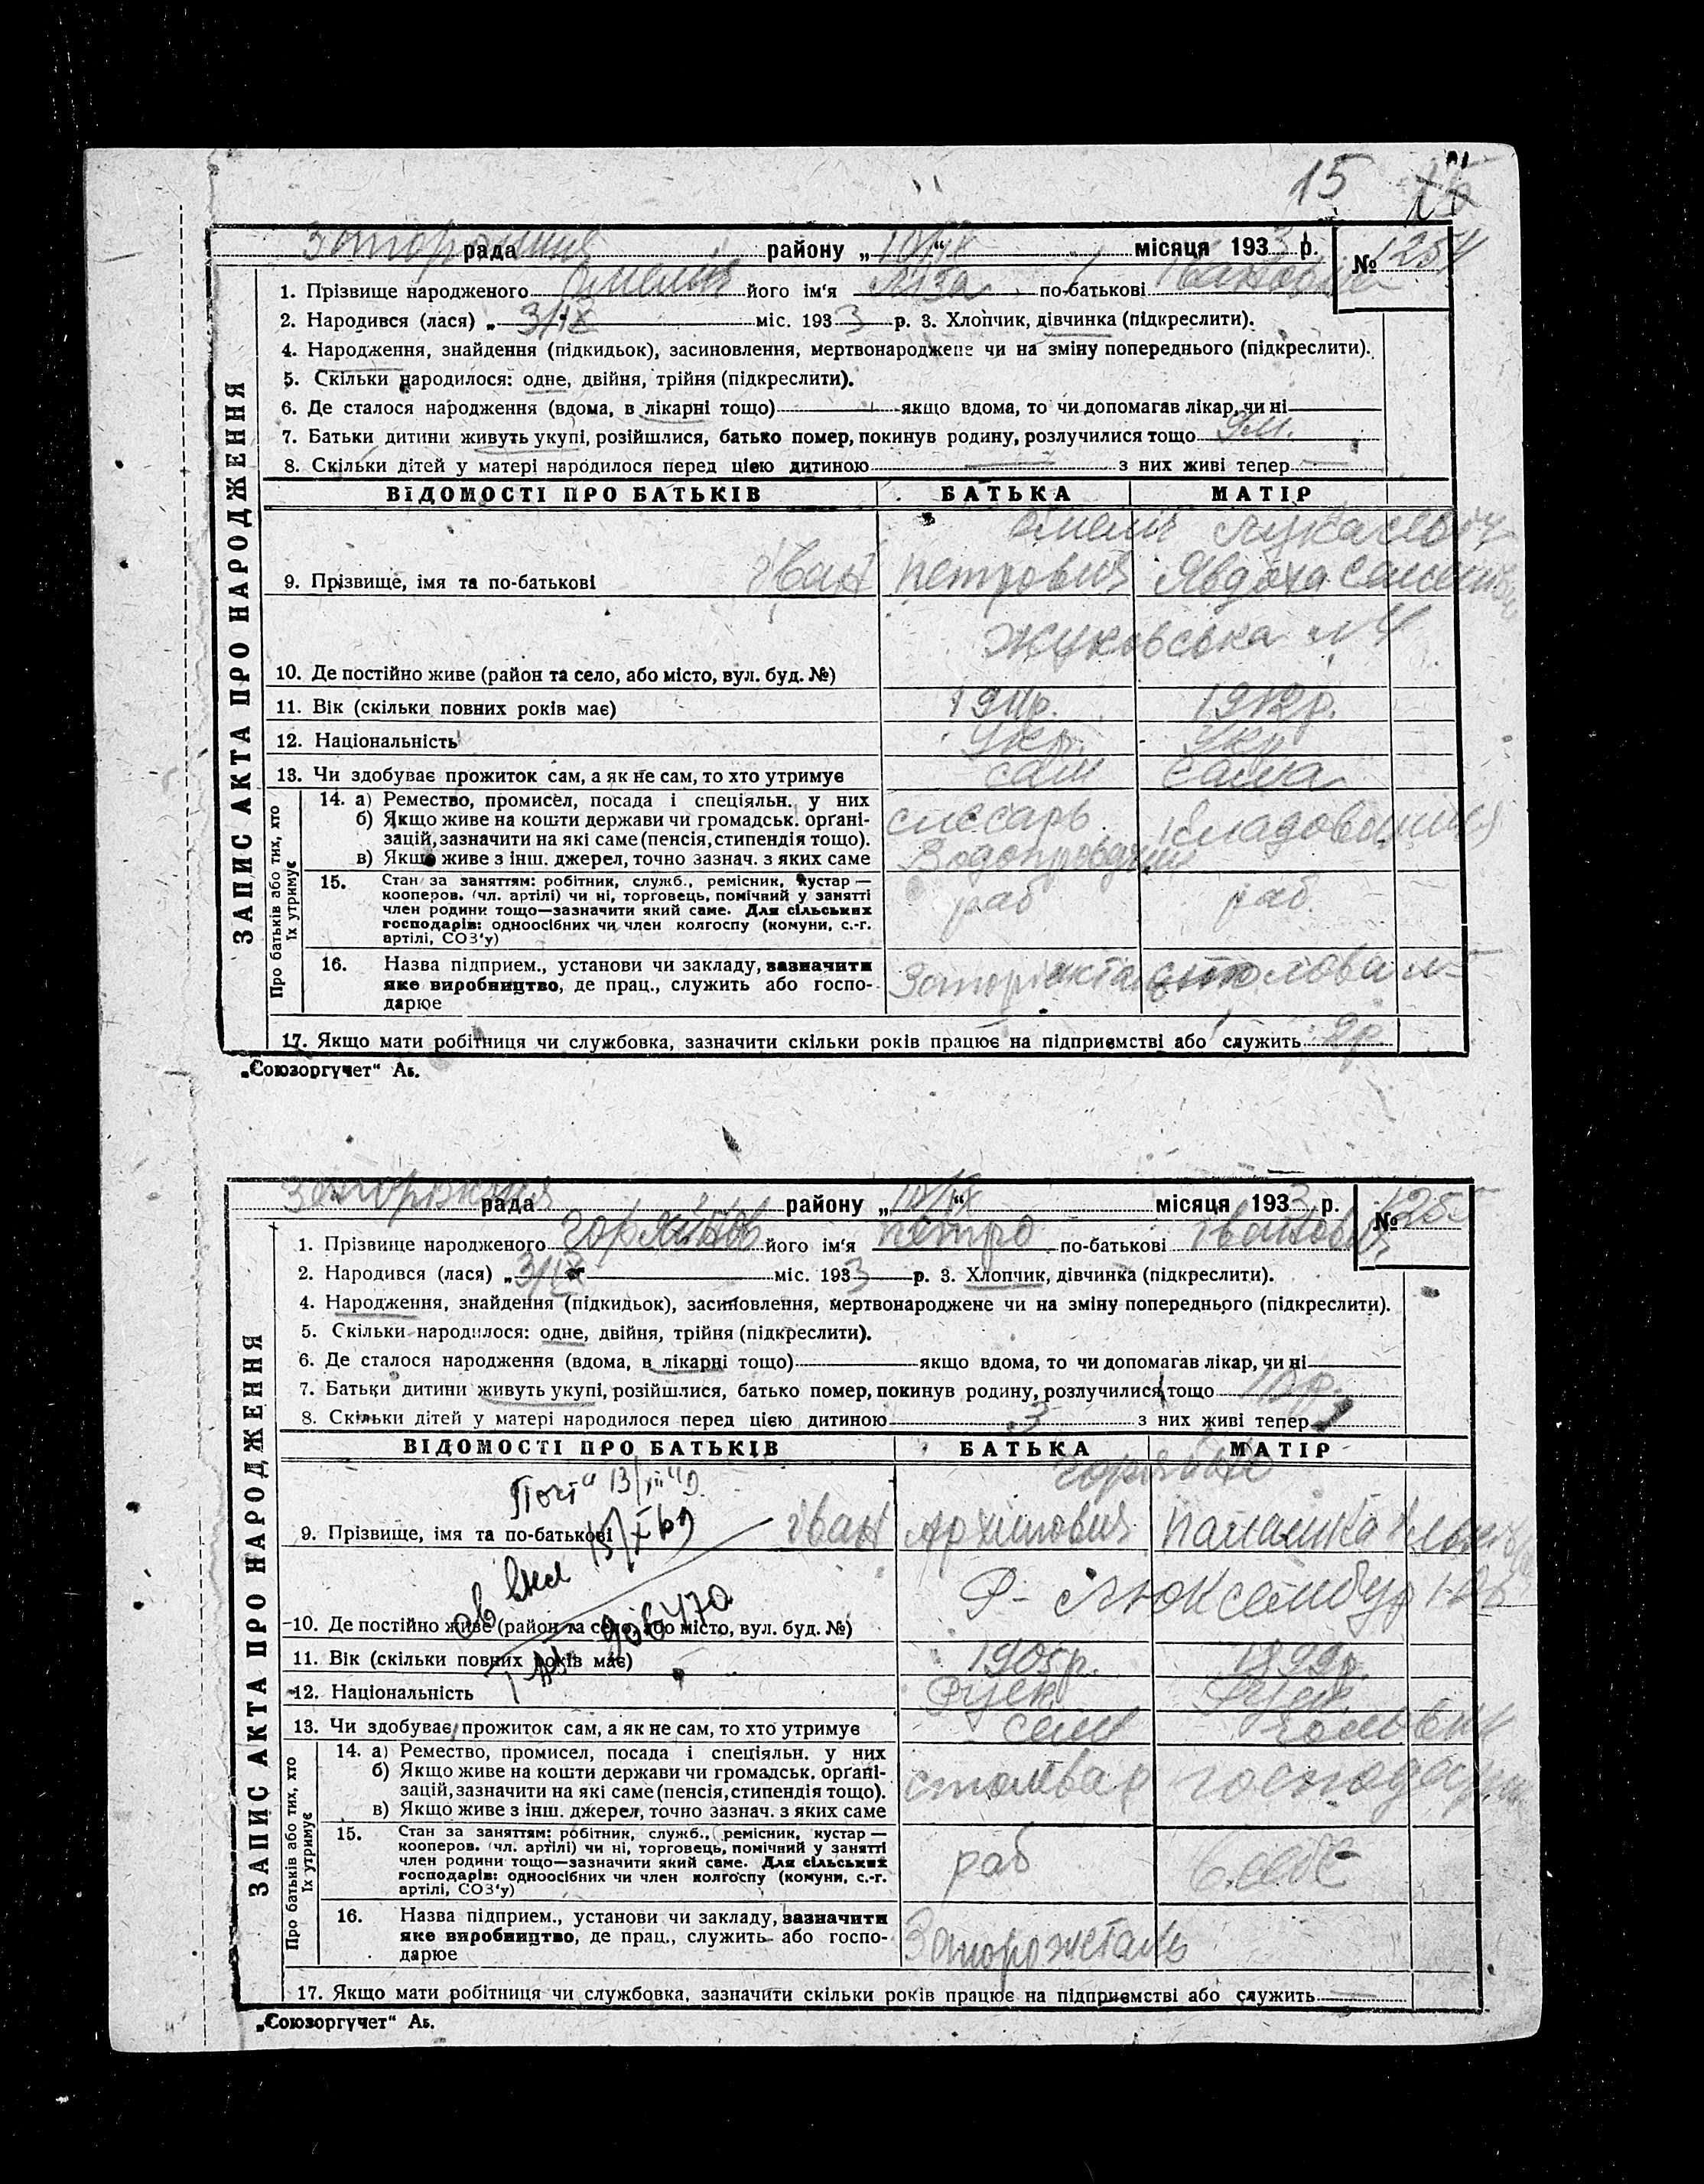 15
рада району „10/IX“ місяця 1933 р. № 1254
1. Прізвище народженого Омелич його ім'я Ліза по-батькові Івановна
2. Народився (лася) „3/IX міс. 1933 р. 3. Хлопчик, дівчинка (підкреслити).
4. Народження, знайдення (підкидьок), засиновлення, мертвонароджене чи на зміну попереднього (підкреслити).
5. Скільки народилося: одне, двійня, трійня (підкреслити).
6. Де сталося народження (вдома, в лікарні тощо) якщо вдома, то чи допомагав лікар, чи ні
7. Батьки дитини живуть укупі, розійшлися, батько помер, покинув родину, розлучилися тощо 9м.
8. Скільки дітей у матері народилося перед цією дитиною — з них живі тепер —
ЗАПИС АКТА ПРО НАРОДЖЕННЯ
ВІДОМОСТІ ПРО БАТЬКІВ БАТЬКА МАТІР
9. Прізвище, імя та по-батькові Іван Петрович Явдоха
10. Де постійно живе (район та село, або місто, вул. буд. №) Жуковська №4
11. Вік (скільки повних років має) 1911р. 1912р.
12. Національність Укр. Укр
13. Чи здобуває прожиток сам, а як не сам, то хто утримує сам сама
Про батьків або тих, хто їх утримує
14. а) Ремество, промисел, посада і спеціяльн. у них
б) Якщо живе на кошти держави чи громадськ. орґані-
зацій, зазначити на які саме (пенсія, стипендія тощо).
в) Якщо живе з інш. джерел, точно зазнач. з яких саме
слєсарь
15. Стан за заняттям: робітник, служб., ремісник, кустар —
кооперов. (чл. артілі) чи ні, торговець, помічний у занятті
член родини тощо—зазначити який саме. Для сільських
господарів: одноосібних чи член колгоспу (комуни, с.-г.
артілі, СОЗ'у)
раб раб.
16. Назва підприєм., установи чи закладу, зазначити
яке виробництво, де прац., служить або госпо-
дарює
17. Якщо мати робітниця чи службовка, зазначити скільки років працює на підприємстві або служить 2р
„Союзоргучет“ Аб.
рада району „10/IX“ місяця 1933 р. № 1255
1. Прізвище народженого його ім'я Петро по-батькові Іванович
2. Народився (лася) „3/IX міс. 1933 р. 3. Хлопчик, дівчинка (підкреслити).
4. Народження, знайдення (підкидьок), засиновлення, мертвонароджене чи на зміну попереднього (підкреслити).
5. Скільки народилося: одне, двійня, трійня (підкреслити).
6. Де сталося народження (вдома, в лікарні тощо) якщо вдома, то чи допомагав лікар, чи ні
7. Батьки дитини живуть укупі, розійшлися, батько помер, покинув родину, розлучилися тощо
8. Скільки дітей у матері народилося перед цією дитиною 3 з них живі тепер
ЗАПИС АКТА ПРО НАРОДЖЕННЯ
ВІДОМОСТІ ПРО БАТЬКІВ БАТЬКА МАТІР
9. Прізвище, імя та по-батькові Іван Архипович
10. Де постійно живе (район та село, або місто, вул. буд. №) Р-
11. Вік (скільки повних років має) 1905р. 1899р.
12. Національність Руськ Руськ
13. Чи здобуває прожиток сам, а як не сам, то хто утримує сам чоловик
Про батьків або тих, хто їх утримує
14. а) Ремество, промисел, посада і спеціяльн. у них
б) Якщо живе на кошти держави чи громадськ. орґані-
зацій, зазначити на які саме (пенсія, стипендія тощо).
в) Якщо живе з інш. джерел, точно зазнач. з яких саме
сталевар
15. Стан за заняттям: робітник, служб., ремісник, кустар —
кооперов. (чл. артілі) чи ні, торговець, помічний у занятті
член родини тощо—зазначити який саме. Для сільських
господарів: одноосібних чи член колгоспу (комуни, с.-г.
артілі, СОЗ'у)
раб
16. Назва підприєм., установи чи закладу, зазначити
яке виробництво, де прац., служить або госпо-
дарює
Запорожсталь
17. Якщо мати робітниця чи службовка, зазначити скільки років працює на підприємстві або служить
„Союзоргучет“ Аб.